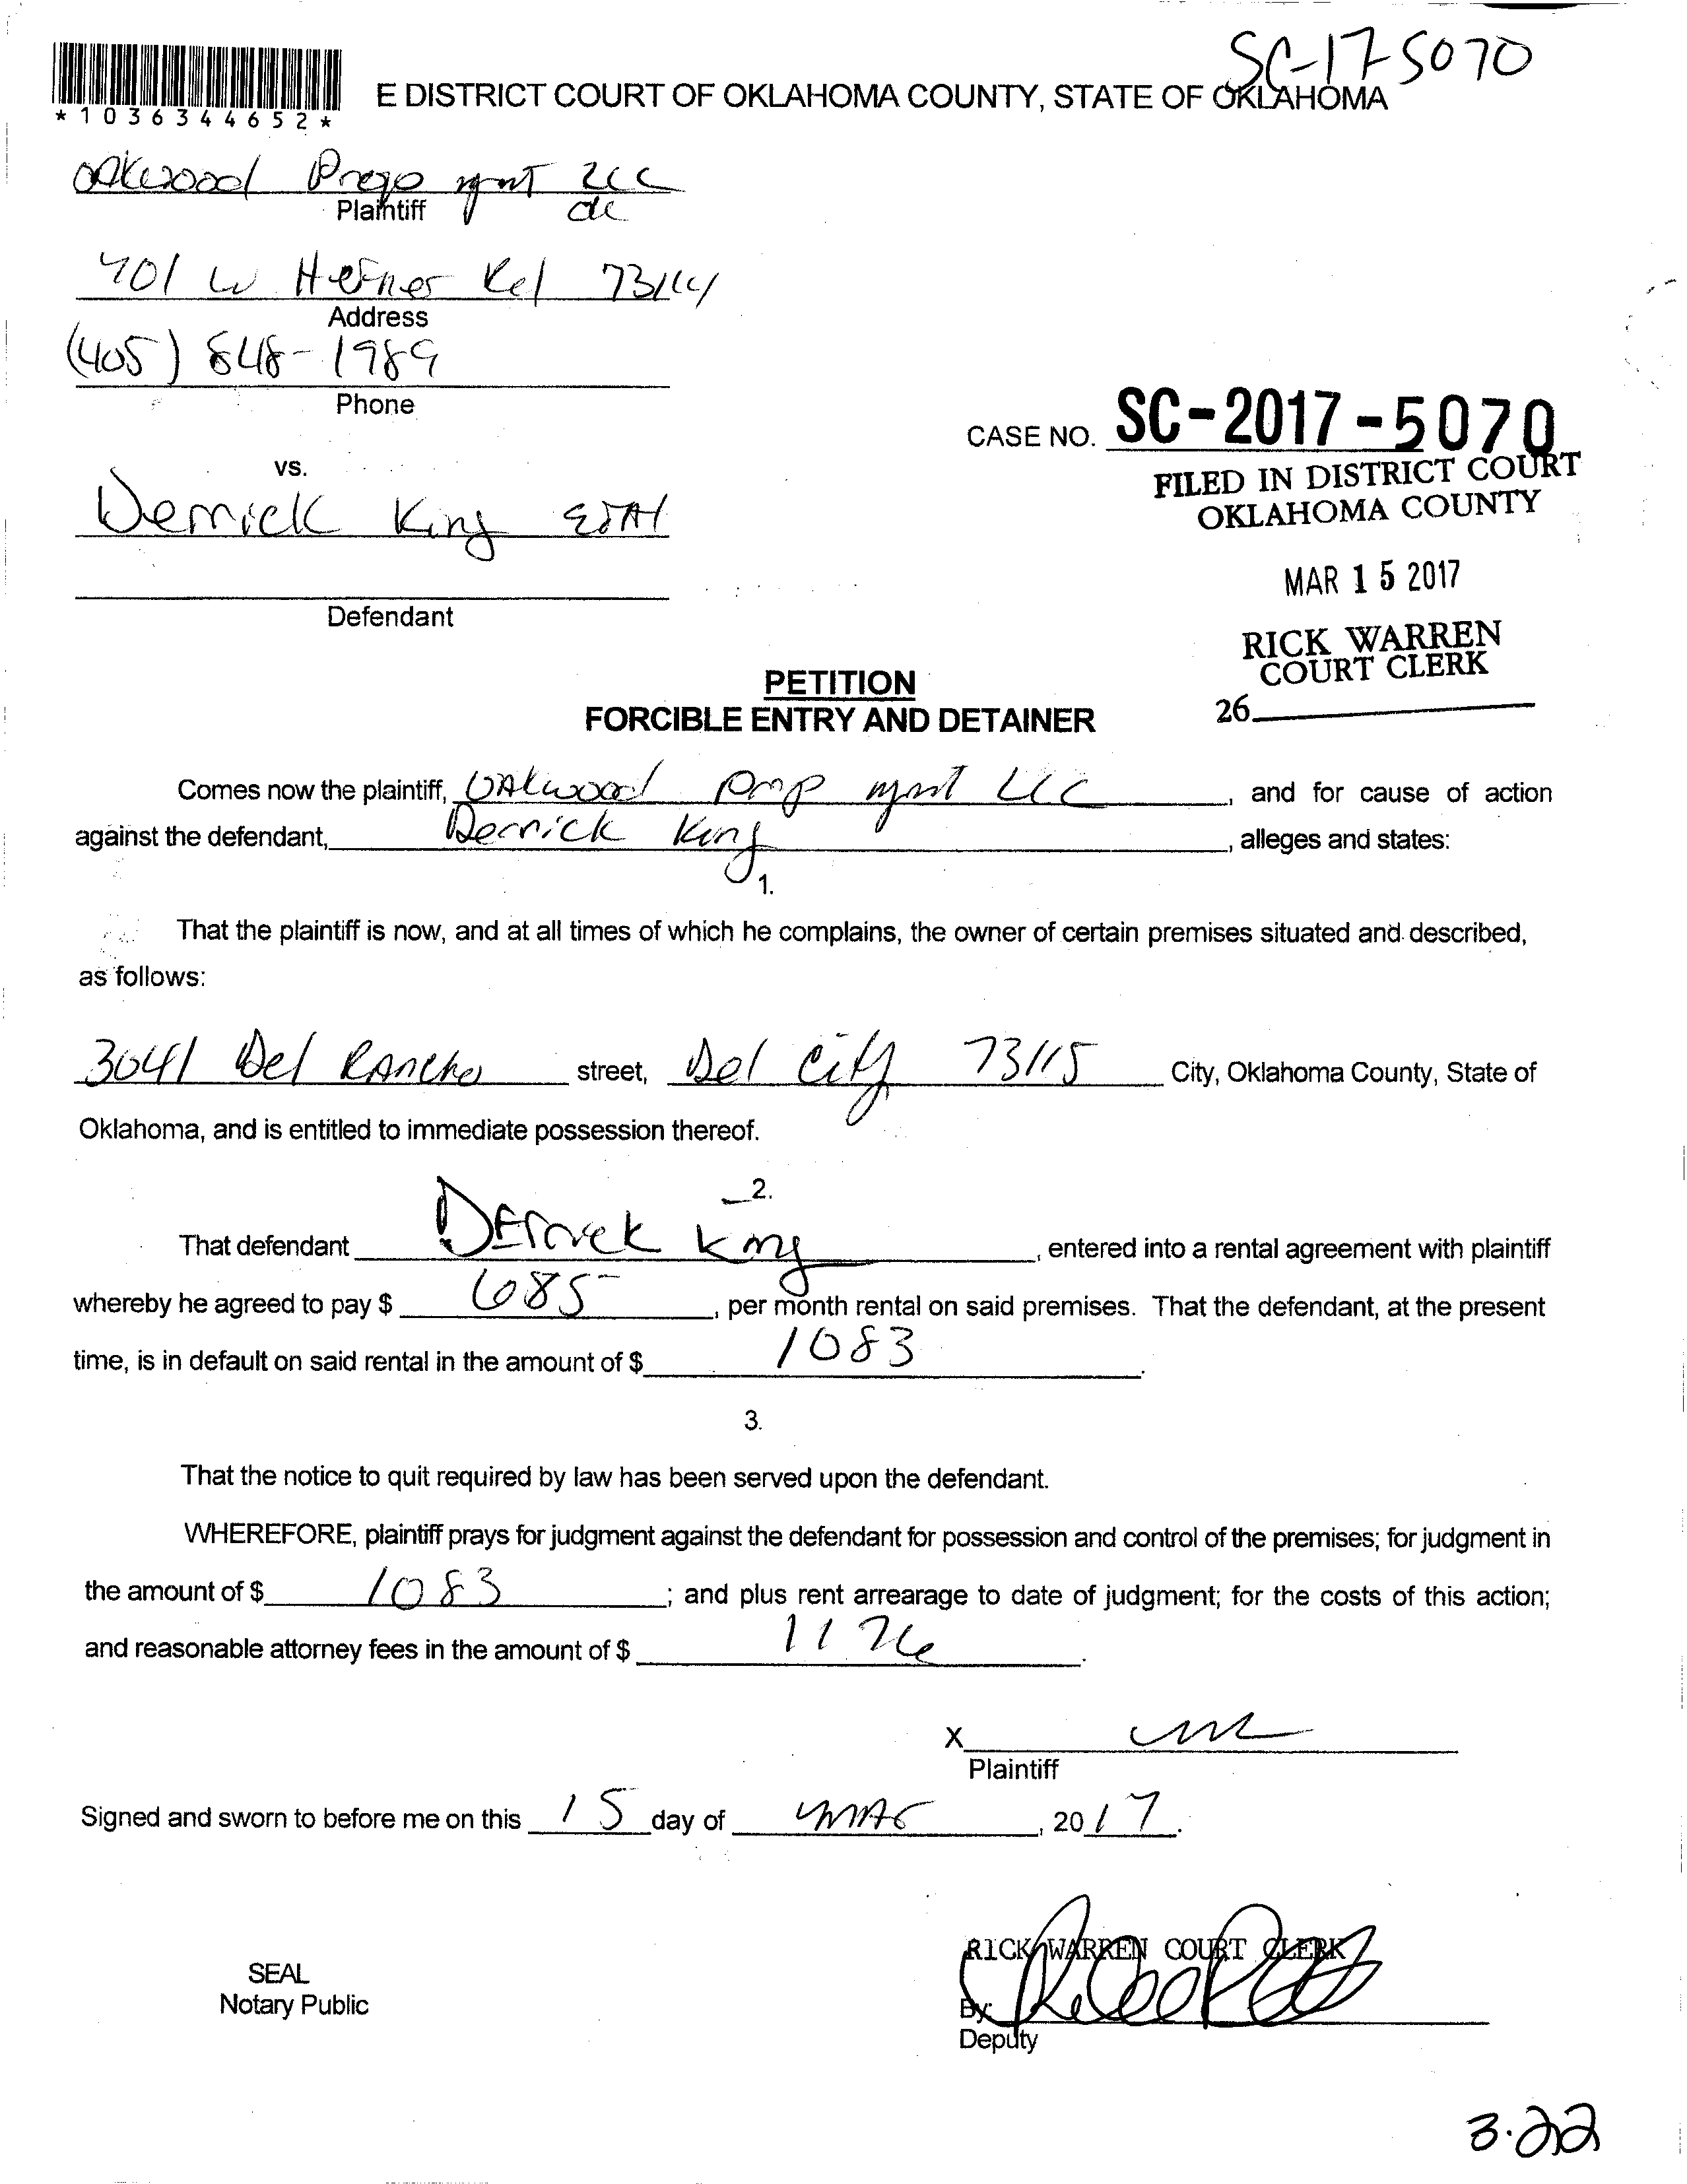 SC-17-5070
*1036344652*
E DISTRICT COURT OF OKLAHOMA COUNTY, STATE OF OKLAHOMA
OAKwood Prop mgmt LLC
Plaintiff
401 W Hefner Rd 73114
Address
(405) 848-1989
Phone
CASE NO. SC-2017-5070
FILED IN DISTRICT COURT
OKLAHOMA COUNTY
vs.
Derrick King
MAR 15 2017
Defendant
RICK WARREN
COURT CLERK
26
PETITION
FORCIBLE ENTRY AND DETAINER
Comes now the plaintiff, OAkwood Prop mgmt LLC, and for cause of action
against the defendant, Derrick King, alleges and states:
1.
That the plaintiff is now, and at all times of which he complains, the owner of certain premises situated and described,
as follows:
3041 Del RAncho street, Del City 73115 City, Oklahoma County, State of
Oklahoma, and is entitled to immediate possession thereof.
2.
That defendant Derrick King, entered into a rental agreement with plaintiff
whereby he agreed to pay $ 685, per month rental on said premises. That the defendant, at the present
time, is in default on said rental in the amount of $ 1083.
3.
That the notice to quit required by law has been served upon the defendant.
WHEREFORE, plaintiff prays for judgment against the defendant for possession and control of the premises; for judgment in
the amount of $ 1083; and plus rent arrearage to date of judgment; for the costs of this action;
and reasonable attorney fees in the amount of $
X
Plaintiff
Signed and sworn to before me on this 15 day of MAr, 2017.
RICK WARREN COURT CLERK
SEAL
Notary Public
By:
Deputy
3.22